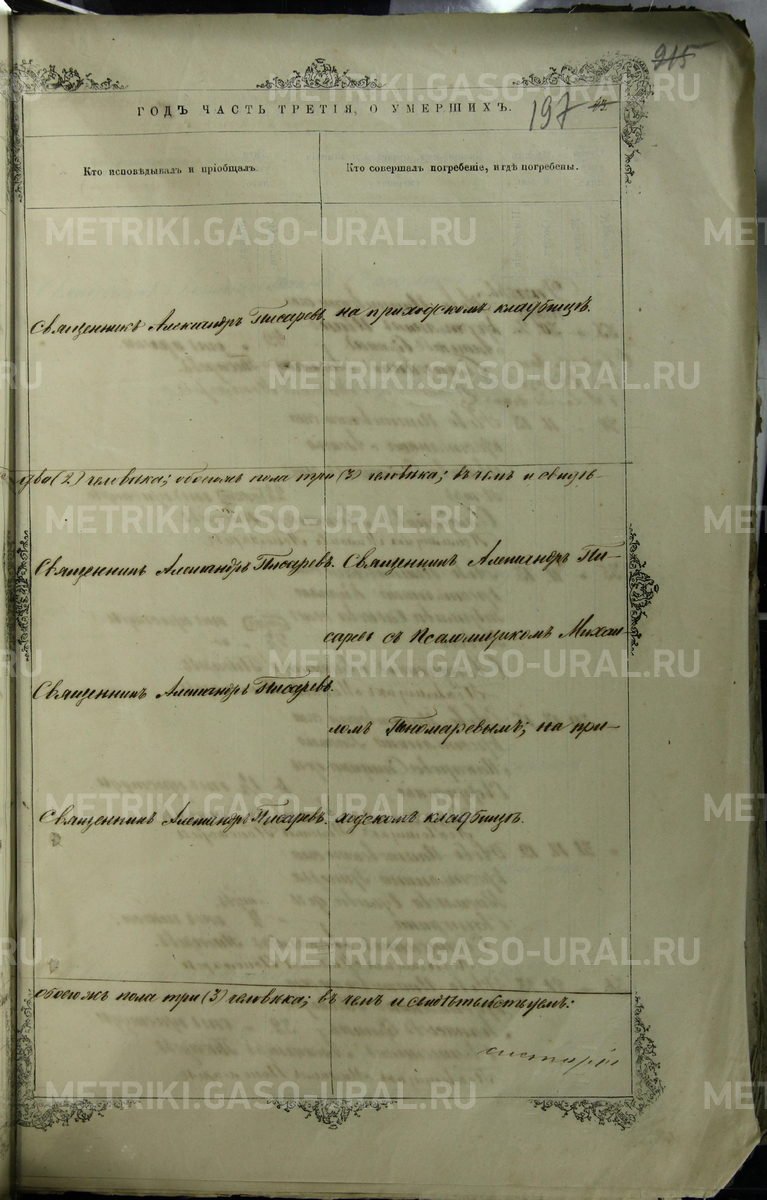 215
ГОДЪ ЧАСТЬ ТРЕТІЯ, О УМЕРШИХЪ.
197
Кто исповѣдывалъ и пріобщалъ.
Кто совершалъ погребеніе, и гдѣ погребены.
Священникъ Александръ Писаревъ
на приходскомъ кладбищѣ.
два (2) человѣка; обоего пола три (3) человѣка; въ чемъ и свидѣ-
Священникъ Александръ Писаревъ.
Священникъ Александръ Пи-
саревъ съ Псаломщикомъ Михаи-
Священникъ Александръ Писаревъ.
ломъ Пономаревымъ; на при-
Священникъ Александръ Писаревъ.
ходскомъ кладбищѣ.
обоего пола три (3) человѣка; въ чемъ и свидѣтельствуемъ:
METRIKI.GASO-URAL.RU